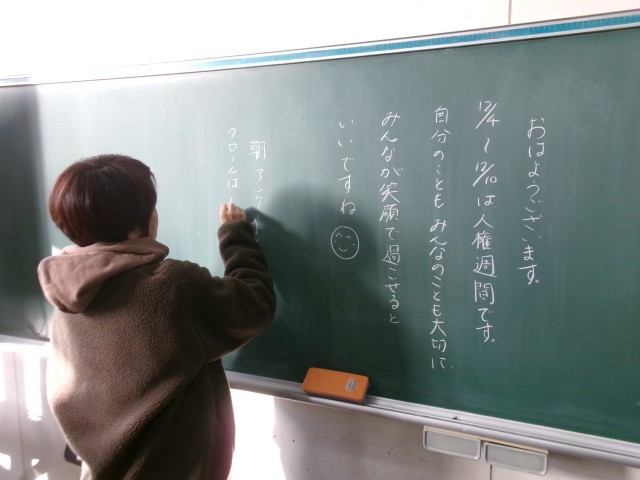 おはようございます。
12/4～12/10は人権週間です。
自分のこともみんなのことも大切に
みんなが笑顔で過ごせると
いいですね
朝アンケート
クロームは